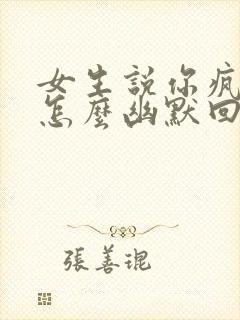 女生説你瘋
怎麼幽默回
張善琨